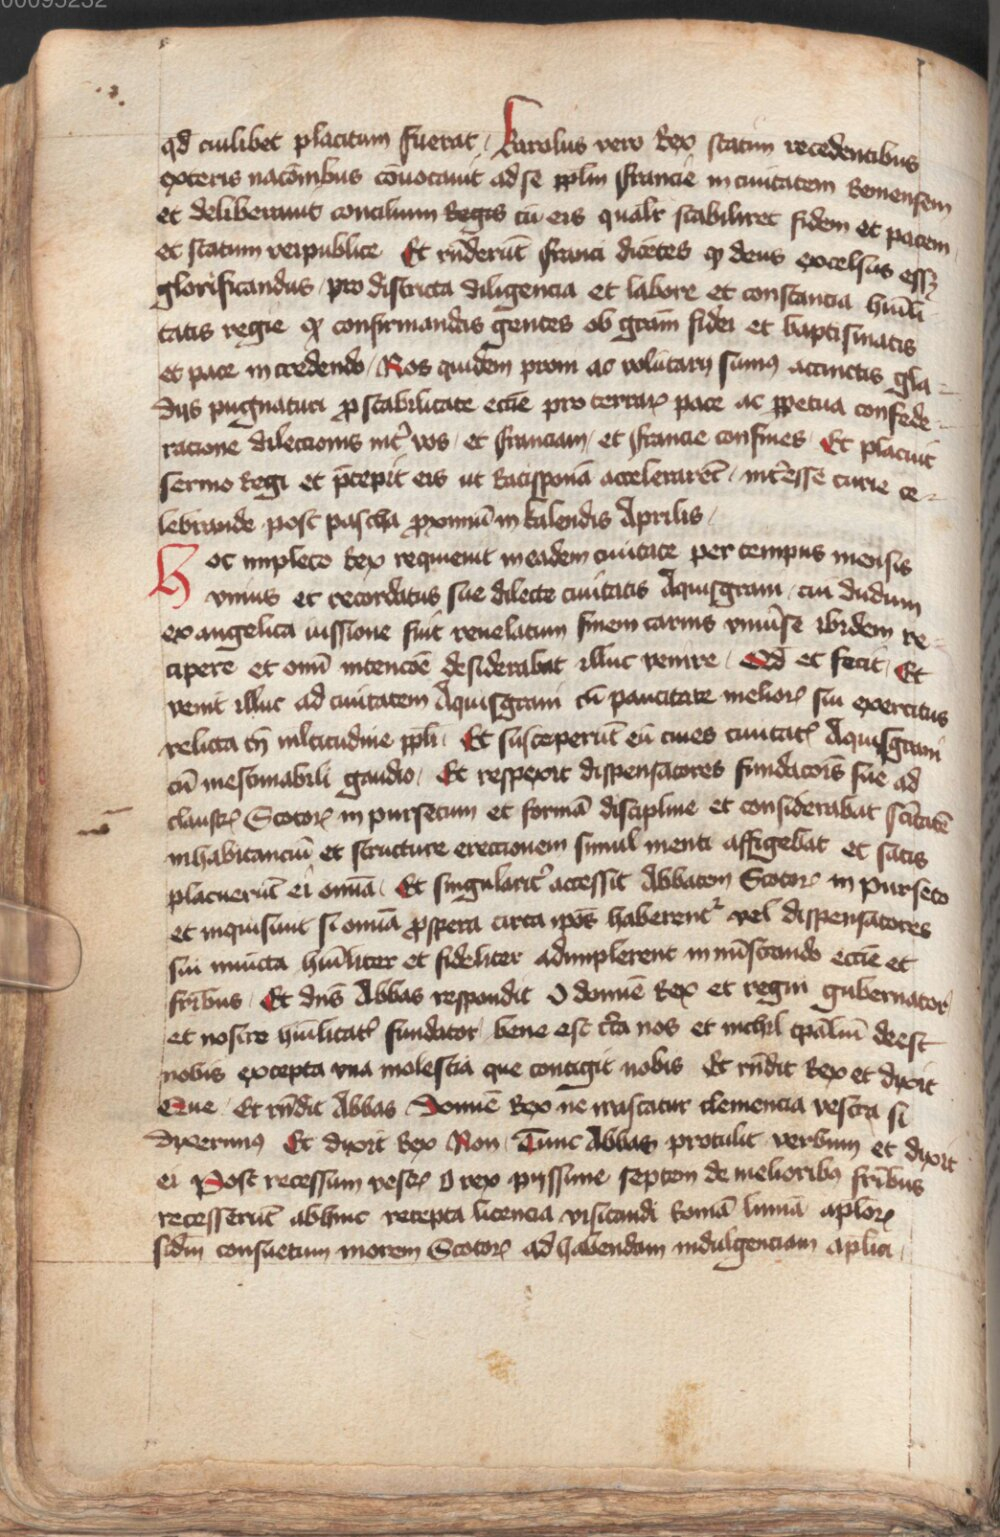 00095252
qd cuilibet placitum fuerat / Karolus vero Rex statim recedentibus
exteris nacōnibus cōuocauit ad se pp̄lm francie in ciuitatem Remensem
et deliberauit concilium Regis cū eis qualr̄ stabiliret fidem et pacem
et statum reipublice Et rn̄derūt franci dicētes qꝫ deus excelsus ess
glorificandus / pro districta diligencia et labore et constancia hūili
tatis regie et confirmandis gentes ob grām fidei et baptismatis
et pace in credendo / Nos quidem proni ac volūtarij sumꝰ accinctis gla-
dijs pugnaturi ꝓ stabilitate eccīe pro terraꝝ pace ac ꝑpetua confede-
racione dilectionis int̄ vos / et franciam / et francie confines / Et placuit
sermo Regi et p̄cepit eis ut Ratisponā accelerarēt / int̄esse curie ce-
lebrande post pascha ꝓximū in kalendis Aprilis /
Hoc impleto Rex requieuit in eadem ciuitate per tempus mensis
vnius et recordatus sue dilecte ciuitatis Aquisgrani / cui dudum
ex angelica iussione fuit reuelatum finem carnis vniūse ibidem re-
cipere et omī intencōe desiderabat illuc venire / Qd et fecit / Et
venit illuc ad ciuitatem Aquisgrani cū paucitate melioꝝ sui exercitus
relicta tn̄ mltitudine pp̄li / Et susceperūt eū ciues ciuitatꝭ Aquisgrani
cū inestimabili gaudio / Et respexit dispensatores fundacōis sue ad
claustꝝ Scotoꝝ in pursetum et formā discipline et considerabat scītatē
inhabitanciū et structure erectionem simul menti affigebat et satis
placuerūt ei omīa / Et singularit̄ accessit Abbatem Scotoꝝ in purseto
et inquisiuit si omīa ꝓspera circa ipōs haberent vel dispensatores
sui iniuncta hūiliter et fideliter adimplerent in mīstrando eccīe et
frībus / Et dns̄ Abbas respondit O domīe Rex et regni gubernator
et nostre hūilitatꝭ fundator / bene est circa nos et nichil tp̄aliū deest
nobis excepta vna molestia que contigit nobis Et rn̄dit Rex et dixit
Que / Et rn̄dit Abbas Domīe Rex ne irascatur clemencia vestra si
dixerimꝰ Et dixit Rex Non / Tunc Abbas protulit verbum et dixit
ei Post recessum vestꝝ O rex pijssime septem de melioribꝰ frībus
recesserūt abhinc recepta licencia visitandi Romā limīa aplōꝝ
scdm consuetum morem Scotoꝝ ad habendam indulgenciam aplica /